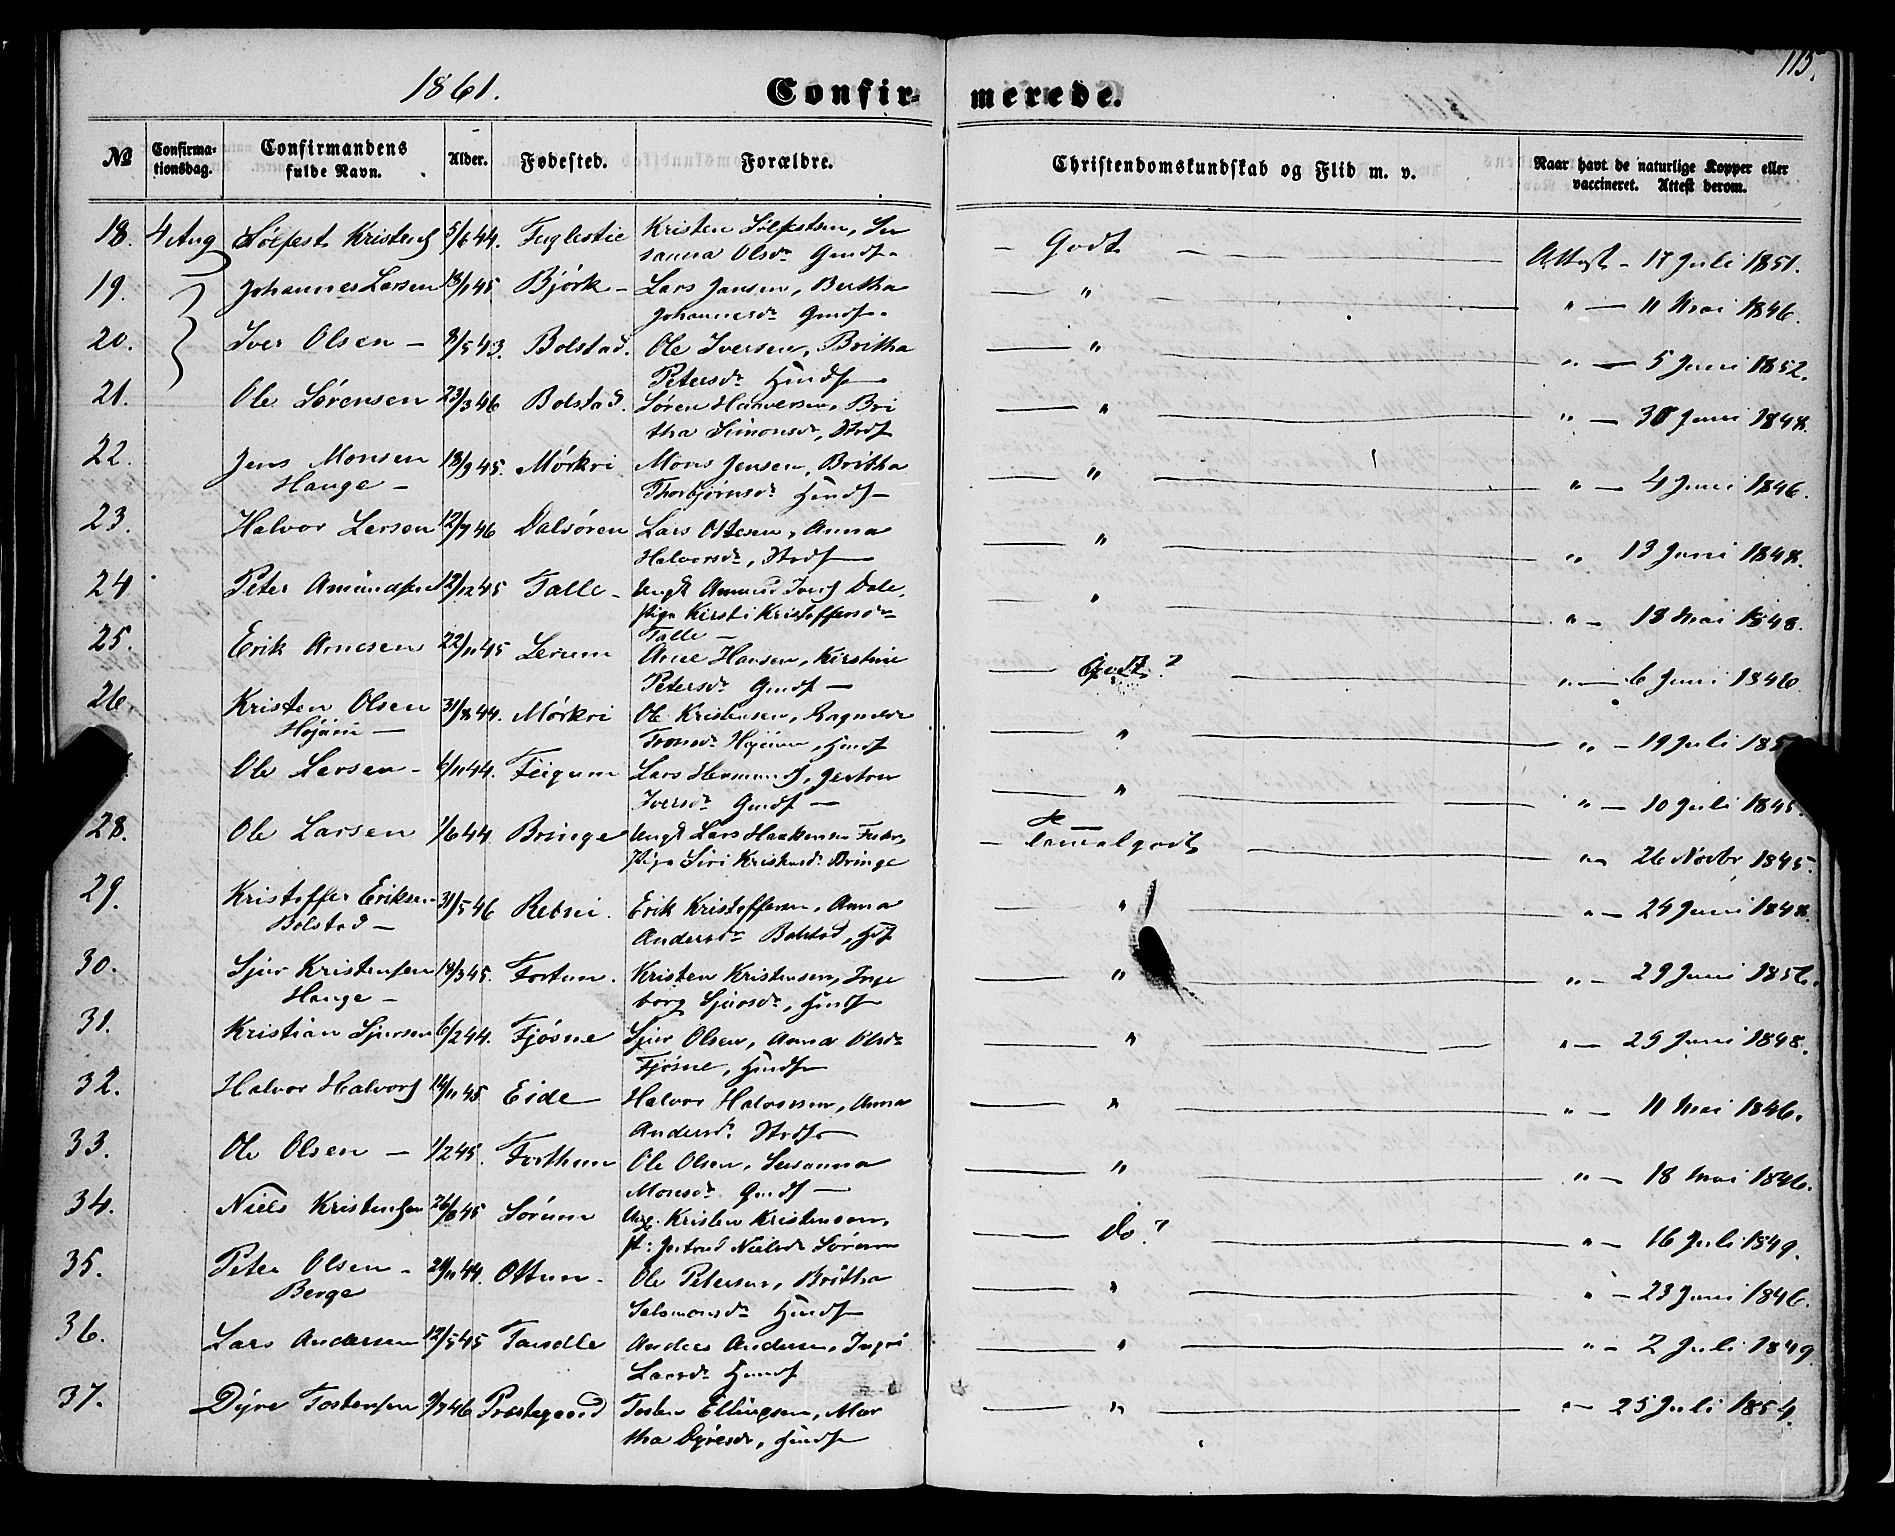 115.
1861. Confirmerede.
№ Confirmationsdag. Confirmandens fulde Navn. Alder. Fødested. Forældre. Christendomskundskab og Flid m. v. Naar havt de naturlige Kopper eller vaccineret. Attest derom.
18. 4 Aug Sølfest Kristens 5/6 44. Fuglestie Kristen Sølfestsen, Su
sanna Olsdr Gmdf. - Godt - Attest - 17 Juli 1851.
19. Johannes Larsen 13/1 45 Bjørk - Lars Jansen, Bertha
Johannesdr Gmdf. " " - 11 Mai 1846.
20. Iver Olsen - 8/5 43 Bolstad. Ole Iversen, Britha
Petersdr Hmdf " " - 5 Juni 1852.
21. Ole Sørensen 23/3 46 Bolstad. Søren Halvorsen, Bri
tha Simonsdr, Strdf " " - 30 Juni 1848.
22. Jens Monsen 18/9 45. Mørkri Mons Jensen, Britha
Hauge - Thorbjørnsdr Hmdf - " " - 4 Juni 1846.
23. Halvor Larsen 12/7 46 Dalsøren Lars Ottesen, Anna
Halvorsdr, Strdf " " 13 Juni 1848.
24. Peter Amundsen 12/12 45 Talle - Ungk Amund Ivers Dale,
Pige Kirsti Kristoffersdr
Talle - " " - 18 Mai 1848.
25. Erik Arnesen 22/11 45 Lerum Arne Hansen, Kirstine
Petersdr Gmdf - Godt? " - 6 Juni 1846.
26. Kristen Olsen 31/8 44. Mørkri Ole Kristensen, Ragnilde
Højum - Tronsdr Højum, Hmdf " " - 19 Juli
Ole Larsen - 6/11 44. Feigum Lars Hermunds, Jertru
Iversdr Gmdf - " " - 10 Juli 1845.
28. Ole Larsen 1/6 44. Bringe Ungk Lars Haakensen
Pige Siri Kristensdr Bringe - Temmelgodt " - 26 Novbr 1845.
29. Kristoffer Eriksen 31/5 46 Rebni. Erik Kristoffersen, Anna
Bolstad - Andersdr Bolstad, Hdf " " - 24 Juni 1848.
30. Sjur Kristensen 18/3 45. Fortun. Kristen Kristensen, Inge
Hauge - borg Sjursdr, Hmdf " " - 29 Juni 1856.
31. Kristian Sjursen 6/2 44. Fjøsne Sjur Olsen, Anna Olsdr
Fjøsne, Hmdf " " - 29 Juni 1848.
32. Halvor Halvors 14/11 45 Eide Halvor Halvorsen, Anna
Andersdr Strdf - " " - 11 Mai 1846.
33. Ole Olsen - 1/2 45. Forthun Ole Olsen, Susanna
Monsdr Gmdf - " " - 18 Mai 1846.
34. Niels Kristensen 26/8 45 Sørum Ung. Kristen Kristensen,
P: Jertrud Nielsdr Sørum do? " - 16 Juli 1849.
35. Peter Olsen - 29/11 44. Ottum - Ole Petersen, Britha
Berge Salomonsdr Hmdf " " - 23 Juni 1846.
36. Lars Andersen 12/5 45 Tandle Anders Andersen, Ingri
Larsdr Hmdf " " - 2 Juli 1849
37. Dyre Tostensen 9/7 46 Prestegaard Tosten Ellingsen, Mar
tha Dyresdr, Hmdf " " - 25 Juli 1854.